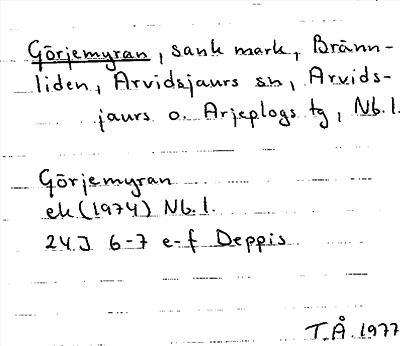 Görjemyran, sank mark, Bränn-
liden, Arvidsjaurs sn, Arvids-
jaurs o. Arjeplogs tg, Nb.l.
Görjemyran
ek (1974) Nb.l.
24J 6-7 e-f Deppis
T.Å. 1977